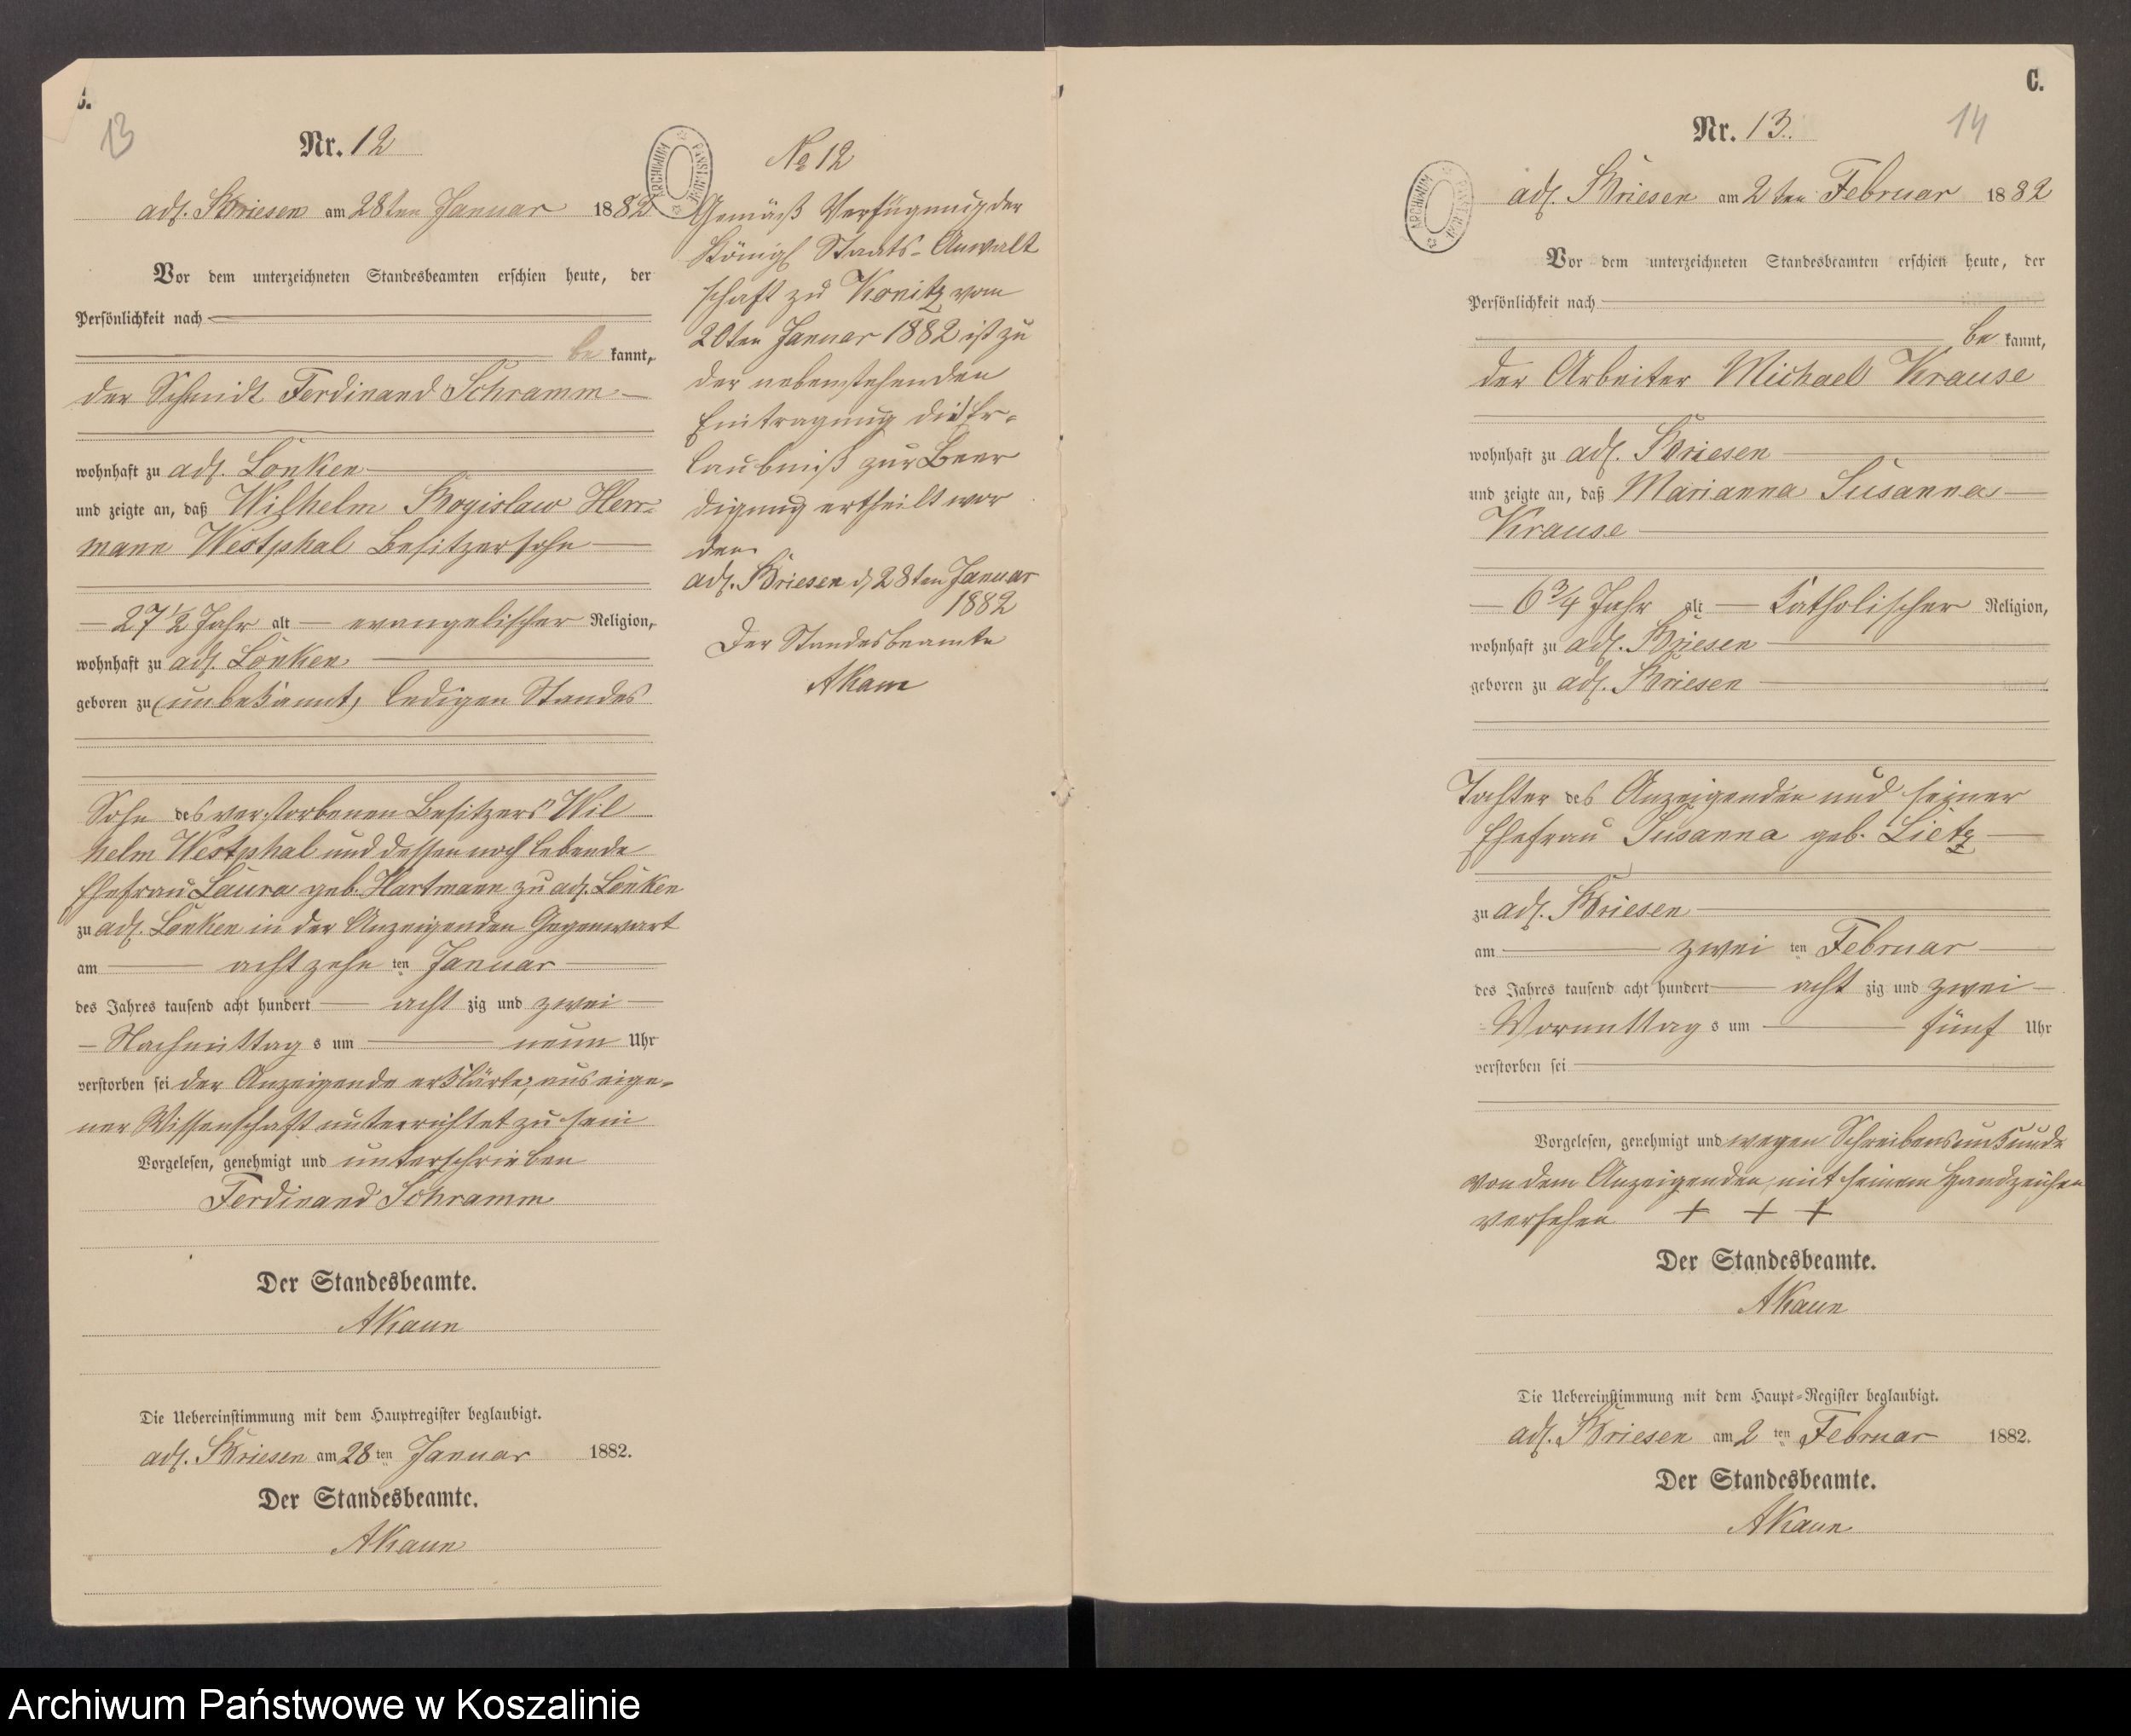 C.
13
Nr. 12
adl. Briesen am 28ten Januar 1882
Vor dem unterzeichneten Standesbeamten erschien heute, der
Persönlichkeit nach
be kannt,
der Schmidt Ferdinand Schramm
wohnhaft zu adl. Lonken
und zeigte an, daß Wilhelm Bogislaw Herr-
mann Westphal Besitzersohn
27 1/2 Jahr alt evangelischer Religion,
wohnhaft zu adl. Lonken
geboren zu (unbekannt) ledigen Standes
Sohn des verstorbenen Besitzers Wil
helm Westphal und dessen noch lebende
Ehefrau Laura geb. Hartmann zu adl. Lonken
zu adl. Lonken in der Anzeigenden Gegenwart
am achtzehn ten Januar
des Jahres tausend acht hundert acht zig und zwei
Nachmittag s um neun Uhr
verstorben sei der Anzeigende erklärte, aus eige-
ner Wissenschaft unterrichtet zu sein
Vorgelesen, genehmigt und unterschrieben
Ferdinand Schramm
Der Standesbeamte.
AKaun
Die Uebereinstimmung mit dem Hauptregister beglaubigt.
adl. Briesen am 28 ten Januar 1882.
Der Standesbeamte.
AKaun
ARCHIWUM PAŃSTWOWE
No 12
Gemäß Verfügung der
Königl Staats-Anwalt
schaft zu Konitz vom
20ten Januar 1882 ist zu
der nebenstehenden
Eintragung die Er-
laubniß zur Beer
digung ertheilt wor
den.
adl. Briesen d 28ten Januar
1882
Der Standesbeamte
AKaun
C.
14
Nr. 13.
ARCHIWUM PAŃSTWOWE
adl. Briesen am 2ten Februar 1882
Vor dem unterzeichneten Standesbeamten erschien heute, der
Persönlichkeit nach
be kannt,
der Arbeiter Michael Krause
wohnhaft zu adl. Briesen
und zeigte an, daß Marianna Susanna
Krause
6 3/4 Jahr alt Katholischer Religion,
wohnhaft zu adl. Briesen
geboren zu adl. Briesen
Tochter des Anzeigenden und seiner
Ehefrau Susanna geb. Lietz
zu adl. Briesen
am zwei ten Februar
des Jahres tausend acht hundert acht zig und zwei
Vormittag s um fünf Uhr
verstorben sei
Vorgelesen, genehmigt und wegen Schreibensunkunde
von dem Anzeigenden, mit seinem Handzeichen
versehen + + +
Der Standesbeamte.
AKaun
Die Uebereinstimmung mit dem Haupt-Register beglaubigt.
adl. Briesen am 2 ten Februar 1882.
Der Standesbeamte.
AKaun
Archiwum Państwowe w Koszalinie